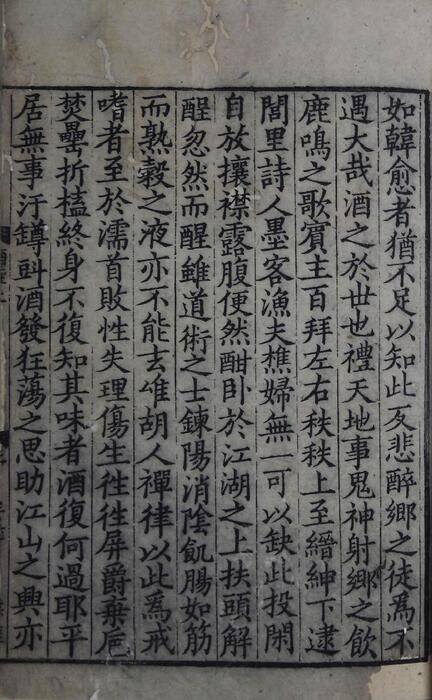 如韓愈者猶不足以知此反悲醉鄉之徒爲不
遇大哉酒之於世也禮天地事鬼神射鄉之飲
鹿鳴之歌賓主百拜左右秩秩上至縉紳下逮
閭里詩人墨客漁夫樵婦無一可以缺此投閑
自放攘襟露腹便然酣卧於江湖之上扶頭解
酲忽然而醒雖道術之士鍊陽消隂飢腸如筋
而熟穀之液亦不能去唯胡人禪律以此爲戒
嗜者至於濡首敗性失理傷生徃徃屏爵棄巵
焚罍折榼終身不復知其味者酒復何過耶平
居無事汙罇斗酒發狂蕩之思助江山之興亦